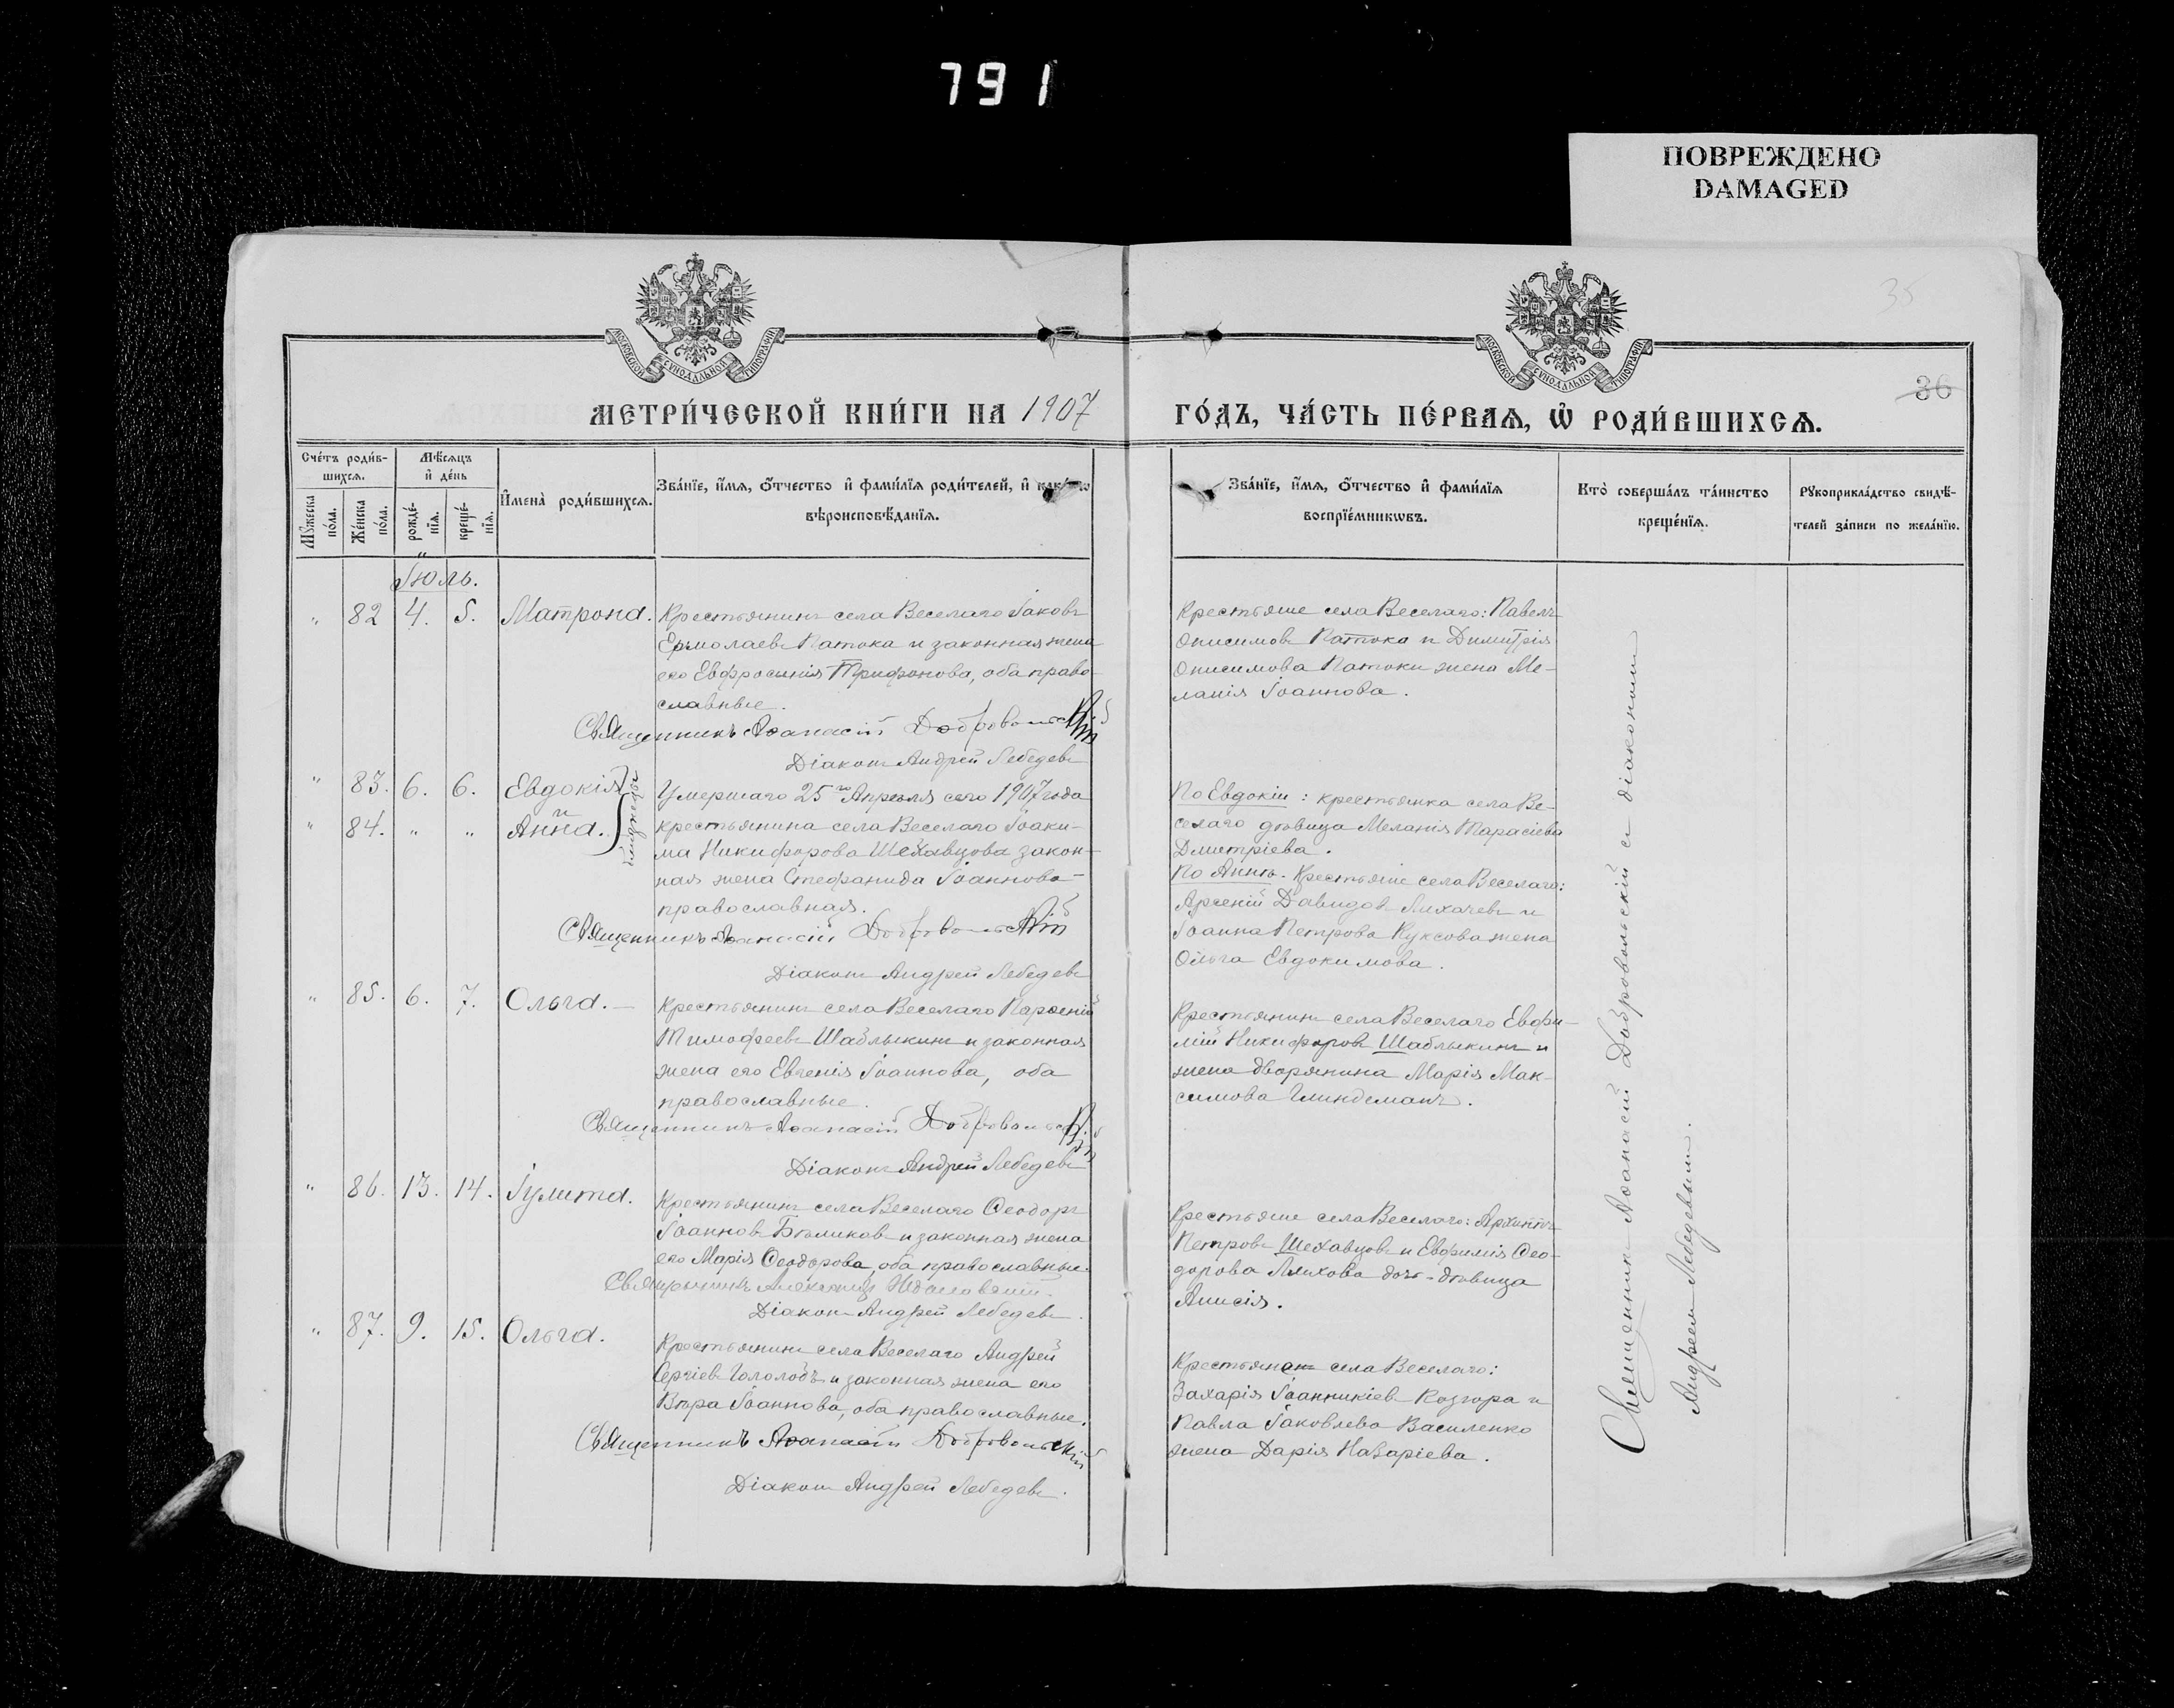 791
ПОВРЕЖДЕНО
DAMAGED
35
36
МОСКОВСКОЙ СѴНОДАЛЬНОЙ ТИПОГРАФІИ
МОСКОВСКОЙ СѴНОДАЛЬНОЙ ТИПОГРАФІИ
МЕТРИ́ЧЕСКОЙ КНИ́ГИ НА 1907
ГО́ДЪ, ЧА́СТЬ ПЕ́РВАѦ, Ѡ҆ РОДИ́ВШИХСѦ.
Сче́тъ роди́в-
шихсѧ.
Мꙋжеска по́ла.
Же́нска по́ла.
Мѣ́сѧцъ
и҆ де́нь
рожде́-
нїѧ.
креще́-
нїѧ.
И҆мена̀ роди́вшихсѧ.
Зва́нїе, и҆́мѧ, о҆́тчество и҆ фами́лїѧ роди́телей, и҆
вѣроисповѣ́данїѧ.
Зва́нїе, и҆́мѧ, о҆́тчество и҆ фами́лїѧ
воспрїе́мникѡвъ.
Кто̀ соверша́лъ та́инство
креще́нїѧ.
Рꙋкоприкла́дство свидѣ́-
телей за́писи по жела́нїю.
Іюль.
" 82 4. 5. Матрона.
Крестьянинъ села Веселаго Іаковъ
Ермолаевъ Патока и законная жена
его Евфросинія Трифонова, оба право-
славные.
Священникъ Аѳанасій Добровольскій
Діаконъ Андрей Лебедевъ
Крестьяне села Веселаго: Павелъ
Онисимовъ Патока и Димитрія
Онисимова Патоки жена Ме-
ланія Іоаннова.
" 83. 6. 6. Евдокія
и
" 84. " " Анна.
близнецы
Умершаго 25го Апрѣля сего 1907 года
крестьянина села Веселаго Іоаки-
ма Никифорова Шехавцова закон-
ная жена Стефанида Іоаннова-
православная.
Священникъ Аѳанасій Добровольскій
Діаконъ Андрей Лебедевъ
По Евдокіи: крестьянка села Ве-
селаго дѣвица Меланія Тарасіева
Дмитріева.
По Аннѣ. Крестьяне села Веселаго:
Арсеній Давидовъ Лихачевъ и
Іоанна Петрова Куксова жена
Ольга Евдокимова.
" 85. 6. 7. Ольга.—
Крестьянинъ села Веселаго Парѳеній
Тимофеевъ Шаблыкинъ и законная
жена его Евгенія Іоаннова, оба
православные.
Священникъ Аѳанасій Добровольскій
Діаконъ Андрей Лебедевъ
Крестьянинъ села Веселаго Евфи-
мій Никифоровъ Шаблыкинъ и
жена дворянина Марія Мак-
симова Глиндеманъ.
" 86. 13. 14. Іулита.
Крестьянинъ села Веселаго Ѳеодоръ
Іоанновъ Бѣликовъ и законная жена
его Марія Ѳеодорова, оба православные.
Священникъ
Діаконъ Андрей Лебедевъ.
Крестьяне села Веселаго: Архиппъ
Петровъ Шехавцовъ и Евфимія Ѳео-
дорова Ляхова дочь-дѣвица
Анисія.
" 87. 9. 15. Ольга.
Крестьянинъ села Веселаго Андрей
Сергіевъ Гололобъ и законная жена его
Вѣра Іоаннова, оба православные.
Священникъ Аѳанасій Добровольскій
Діаконъ Андрей Лебедевъ.
села Веселаго:
Захарія Іоанникіевъ Козюра и
Павла Іаковлева Василенко
жена Дарія Назаріева.
Священникъ Аѳанасій Добровольскій съ діакономъ
Андреем Лебедевымъ.